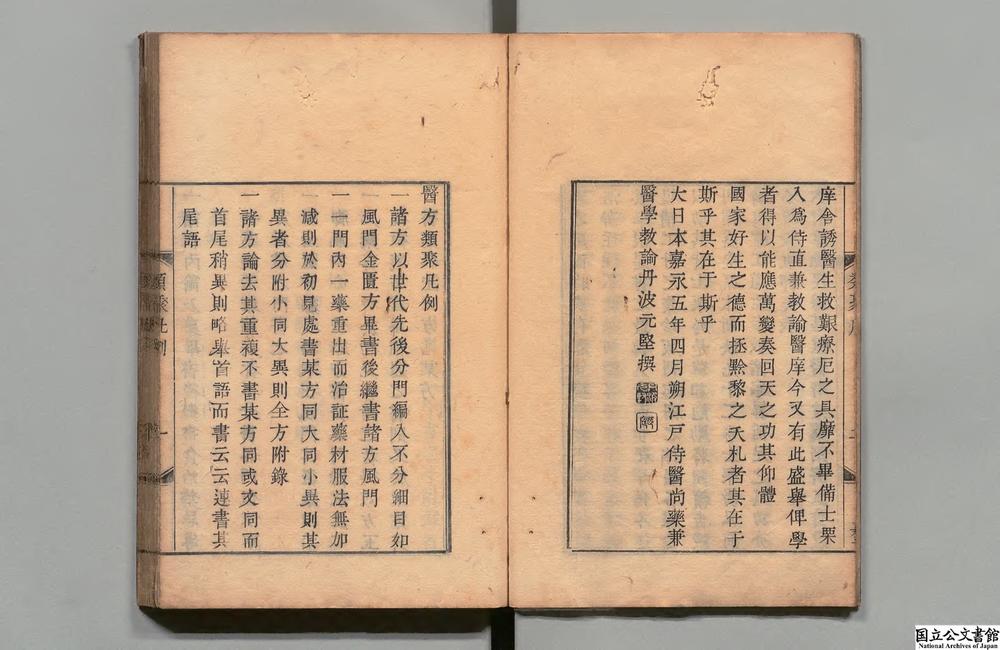 庠舍誘醫生救艱療厄之具靡不畢備士栗
入爲侍直兼教諭醫庠今又有此盛舉俾學
者得以能應萬變奏回天之功其仰體
國家好生之德而拯黔黎之夭札者其在于
斯乎其在于斯乎
大日本嘉永五年四月朔江戸侍醫尚藥兼
醫學教諭丹波元堅撰
醫方類聚凡例
一諸方以世代先後分門編入不分細目如
風門金匱方畢書後繼書諸方風門
一臓門內一藥重出而治証藥材服法無加
減則於初見處書某方同大同小異則其
異者分附小同大異則全方附錄
一諸方論去其重複不書某方同或文同而
首尾稍異則略擧首語而書云云連書其
尾語
類聚凡例
一
国立公文書館
National Archives of Japan